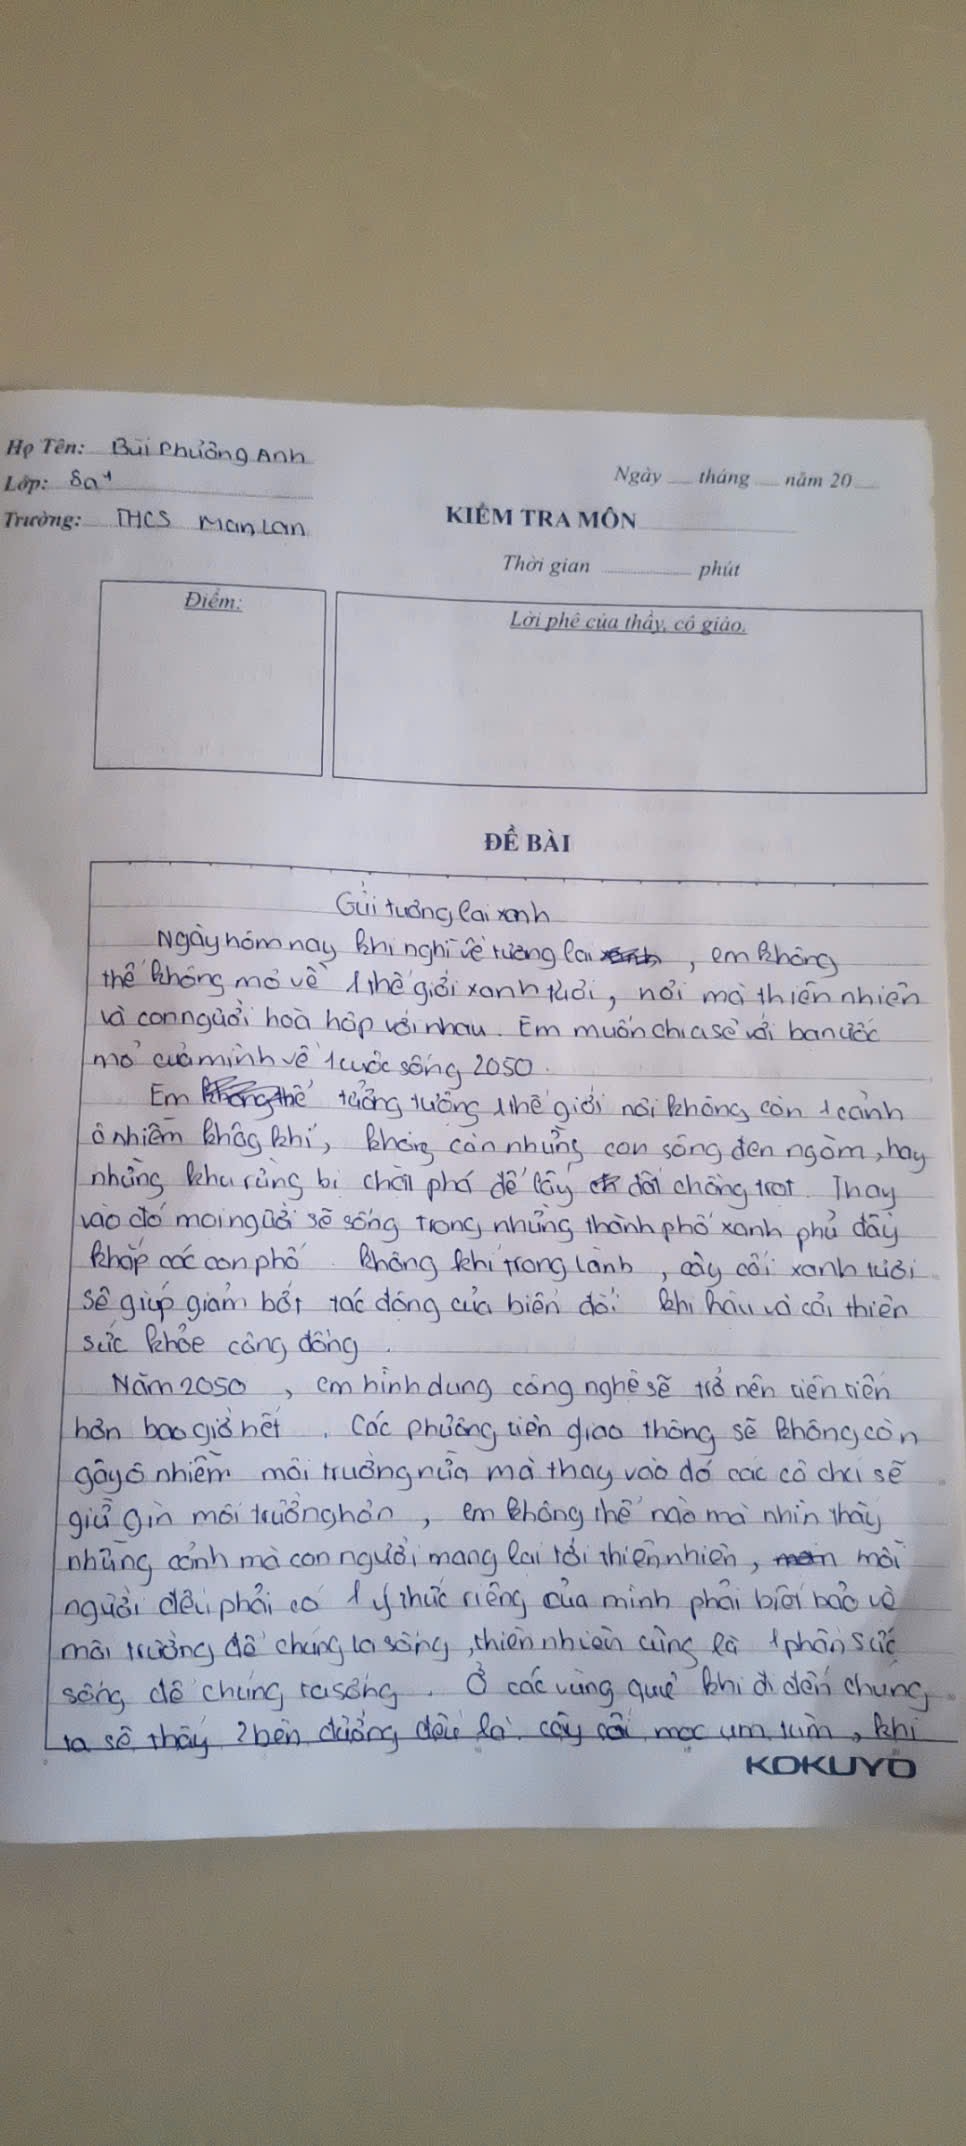 Họ Tên: Bùi Phương Anh
Lớp: 8a1
Trường: THCS Man Lan
Ngày ... tháng ... năm 20 ...
KIỂM TRA MÔN
Thời gian ... phút
Điểm:
Lời phê của thầy, cô giáo.
ĐỀ BÀI
Gửi tương lai xanh
Ngày hôm nay khi nghĩ về tương lai, em không
thể không mơ về 1 thế giới xanh tươi, nơi mà thiên nhiên
và con người hoà hợp với nhau. Em muốn chia sẻ với bạn ước
mơ của mình về 1 cuộc sống 2050.
Em tưởng tượng 1 thế giới nơi không còn 1 cảnh
ô nhiễm khôg khí, không còn những con sông đen ngòm, hay
những khu rừng bị chặt phá để lấy đất chồng trọt. Thay
vào đó mọi người sẽ sống trong những thành phố xanh phủ đầy
khắp các con phố. Không khí trong lành, cây cối xanh tươi
sẽ giúp giảm bớt tác động của biến đổi khí hậu và cải thiện
sức khỏe cộng đồng.
Năm 2050, em hình dung công nghệ sẽ trở nên tiên tiến
hơn bao giờ hết. Các phương tiện giao thông sẽ không còn
gây ô nhiễm môi trường nữa mà thay vào đó các cô chú sẽ
giữ gìn môi trường hơn, em không thể nào mà nhìn thấy
những cảnh mà con người mang lại tới thiên nhiên, mỗi
người đều phải có 1 ý thức riêng của mình phải biết bảo vệ
môi trường để chúng ta sống, thiên nhiên cũng là 1 phần sức
sống để chúng ta sống. Ở các vùng quê khi đi đến chúng
ta sẽ thấy 2 bên đường đều là cây cối mọc um tùm, khi
KOKUYO